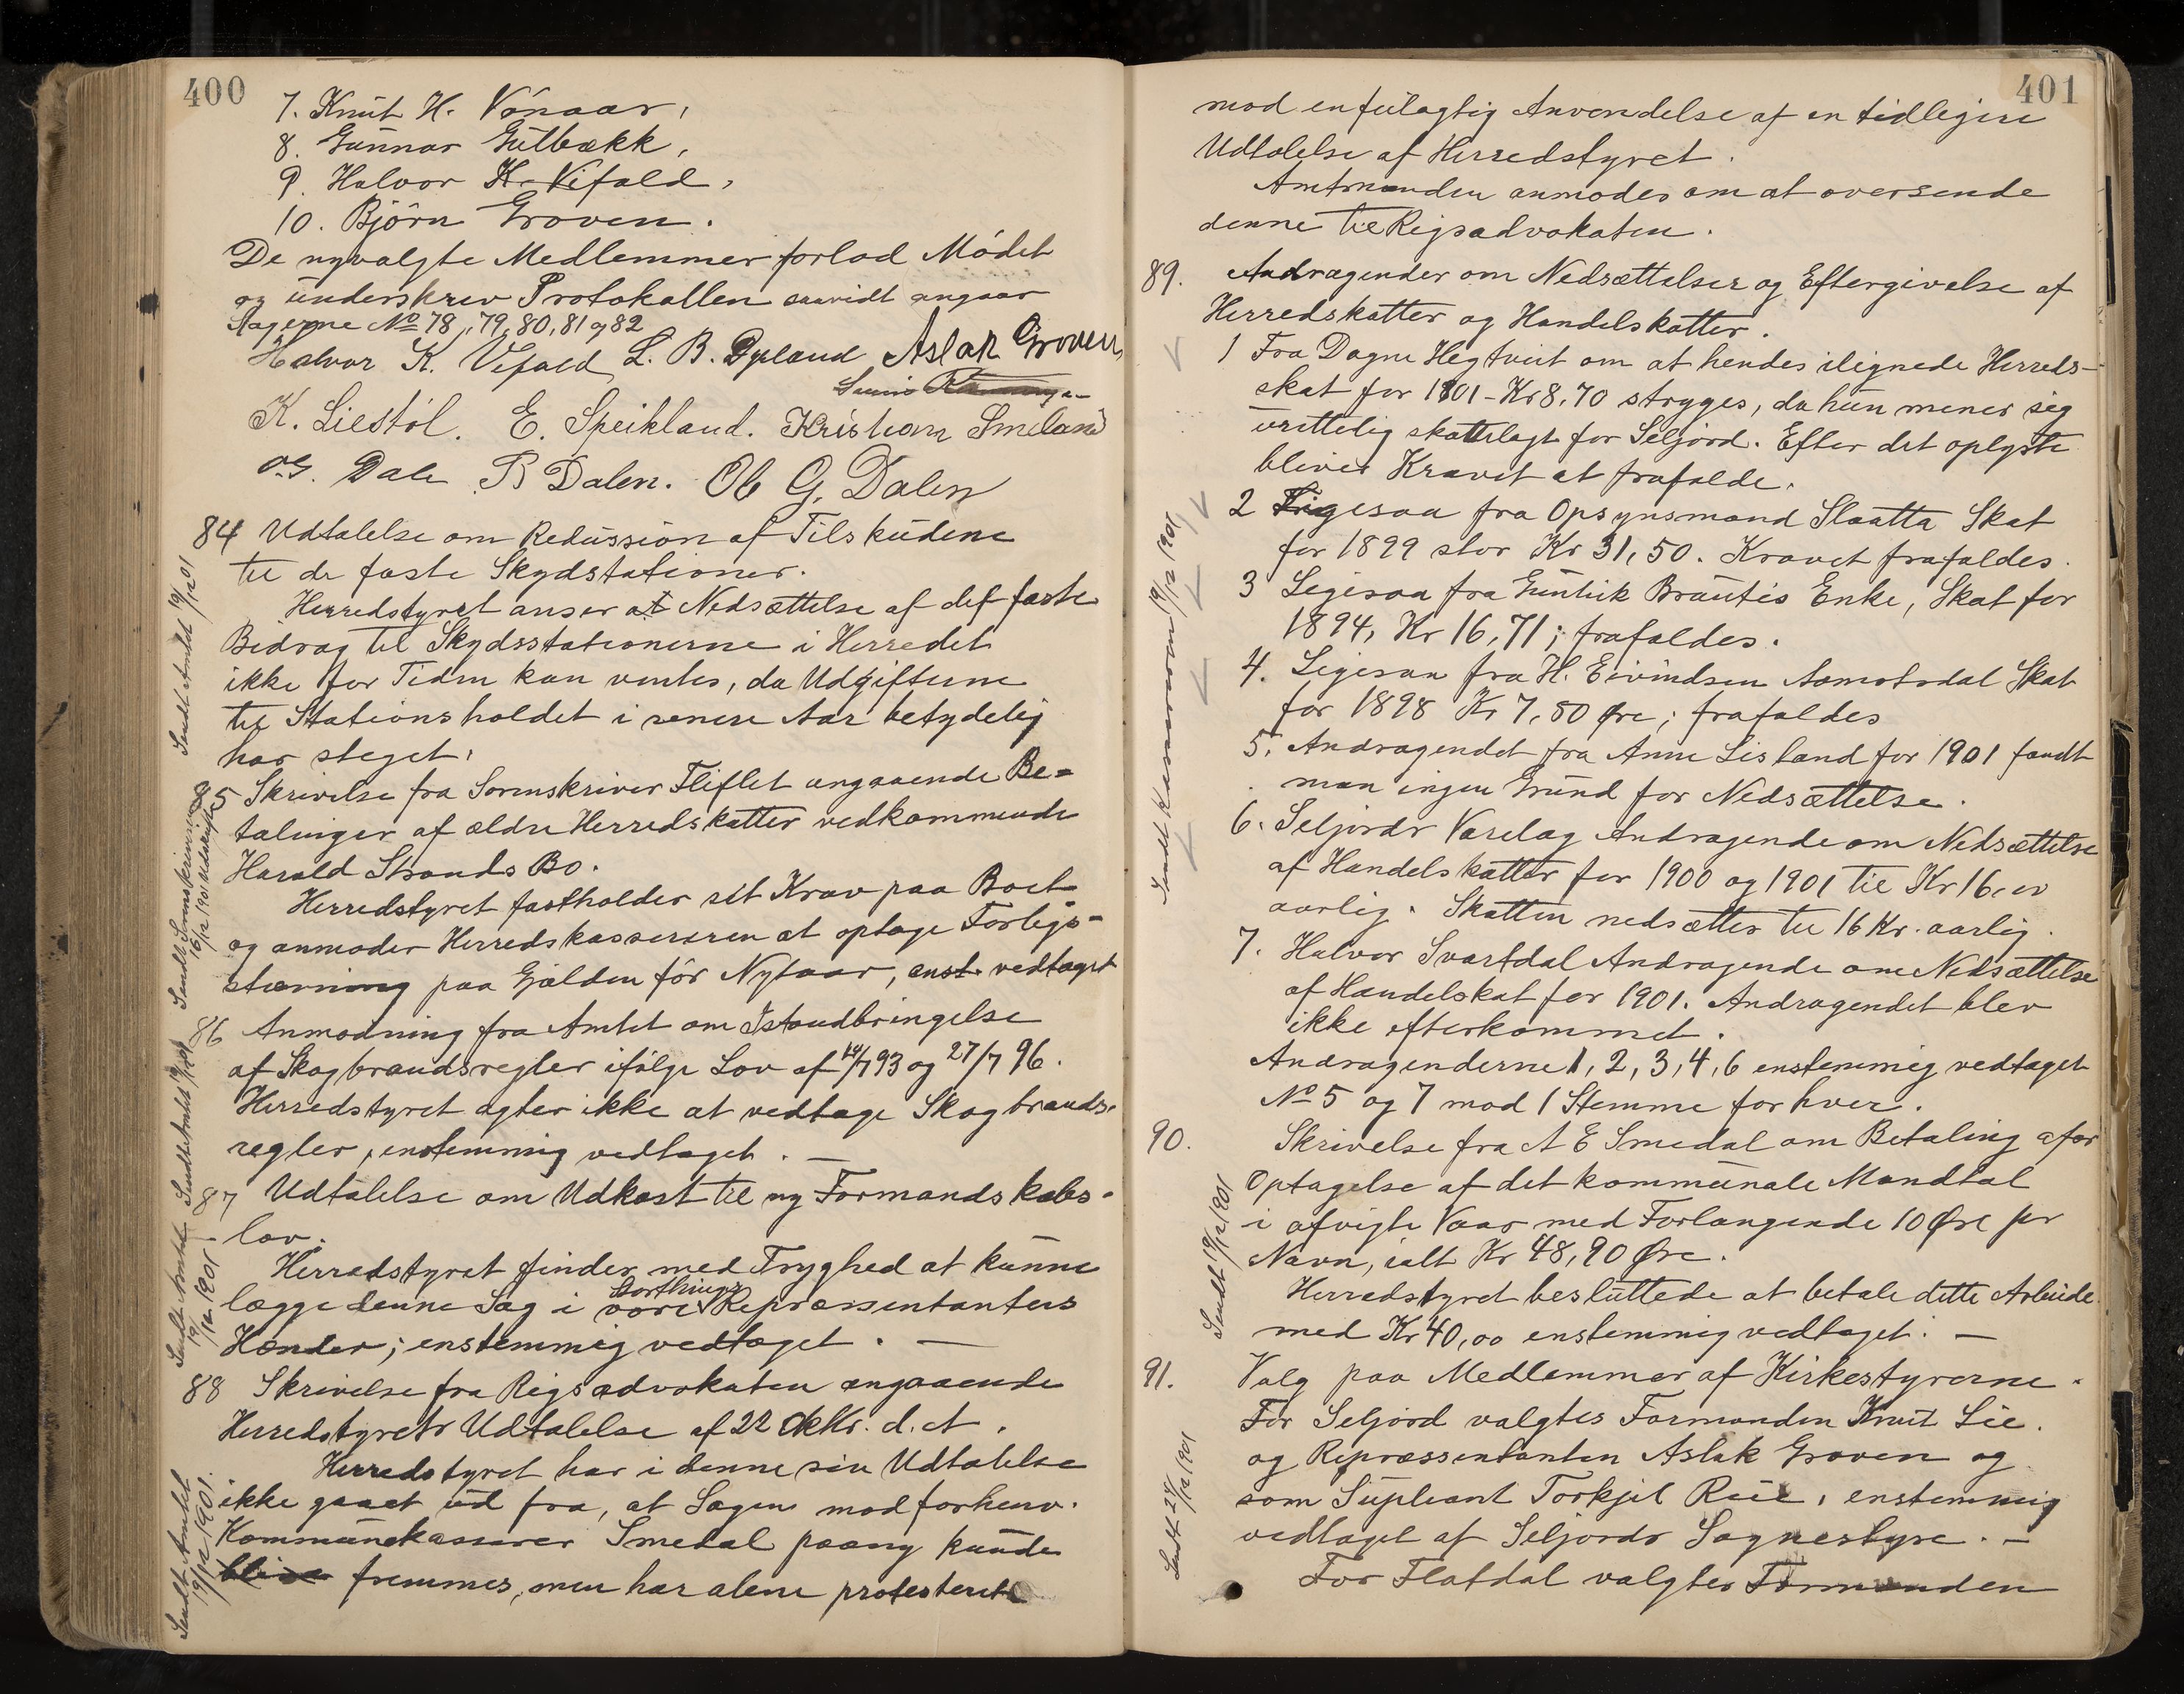 400
7. Knut H. Vónaar,
8. Gunnar Gutbækk,
9. Halvor K. Vefald,
10. Björn Groven.
De nyvalgte Medlemmer forlod Mödet
og underskrev Protokollen saavidt angaar
Sagerne No 78, 79, 80, 81 og 82
Halvor K. Vefald L. B. Dyrland Aslak Groven
K. Liestöl. E. Speikland. Kristian Smeland
O.G. Dale B Dalen. Ole G. Dalen
84 Udtalelse om Redussion af Tilskudene
til de faste Skydstationer.
Herredstyret anser at Nedsættelse af det faste
Bidrag til Skydsstationerne i Herredet
ikke for Tiden kan ventes, da Udgifterne
til Stationsholdet i senere Aar betydelig
har steget.
Sendt Amtet 19/12 01
85 Skrivelse fra Sorenskriver Fliflet angaaende Be=
talinger af ældre Herredskatter vedkommende
Harald Strands Bo.
Herredstyret fastholder sit Krav paa Boet
og anmoder Herredskassereren at optage Forligs=
stævning paa Gjælden för Nytaar, enst. vedtaget
Sendt Sorenskriveren 16/12 1901
86 Anmodning fra Amtet om Istandbringelse
af Skogbrandsregler ifölge Lov af /7 93 og 27/7 96.
Herredstyret agter ikke at vedtage Skogbrands-
regler, enstemmig vedtaget. —
Sendt Amtet 19/12 1901
87 Udtalelse om Udkast til ny Formandskabs-
lov.
Herredstyret finder med Tryghed at kunne
lægge denne Sag i vore Storthings Repræssentanters
Hænder; enstemmig vedtaget. —
Sendt Amtet 19/12 1901
88 Skrivelse fra Rigsadvokaten angaaende
Herredstyrets Udtalelse af 22 Oktbr. d. A.
Herredstyret har i denne sin Udtalelse
ikke gaaet ud fra, at Sagen mod forhenv.
Kommunekasserer Smedal paany kunde
blive fremmes, men har alene protesteret
Sendt Amtet 19/12 1901.
401
mod en feilagtig Anvendelse af en tidligere
Udtalelse af Herredstyret.
Amtmanden anmodes om at oversende
denne til Rigsadvokaten.
89. Andragender om Nedsættelser og Eftergivelse af
Herredskatter og Handelskatter.
1 Fra Dagne Hegtveit om at hendes ilignede Herreds-
skat for 1901 - Kr 8,70 stryges, da hun mener sig
urettelig skattelagt for Seljord. Efter det oplyste
bliver Kravet at frafalde.
2 Ligesaa fra Opsynsmand Slaatta Skat
for 1899 stor Kr 31,50. Kravet frafaldes.
3 Ligesaa fra Guntik Brautes Enke, Skat for
1894, Kr 16,71; frafaldes.
4. Ligesaa fra H. Eivindsen Aamotsdal Skat
for 1898 Kr 7,80 Øre; frafaldes
5. Andragendet fra Anne Lisland for 1901 fandt
man ingen Grund for Nedsættelse.
6. Seljords Varelag Andragende om Nedsættelse
af Handelskatter for 1900 og 1901 til Kr 16,00
aarlig. Skatten nedsættes til 16 Kr. aarlig.
7. Halvor Svartdal Andragende om Nedsættelse
af Handelskat for 1901. Andragendet blev
ikke efterkommet.
Andragenderne 1, 2, 3, 4, 6 enstemmig vedtaget
No 5 og 7 mod 1 Stemme for hver.
Sendt Kassereren 19/12 1901
90. Skrivelse fra A E Smedal om Betaling for
Optagelse af det kommunale Mandtal
i afvigte Vaar med Forlangende 10 Øre pr
Navn, ialt Kr 48,90 Øre.
Herredstyret besluttede at betale dette Arbeide
med Kr 40,00 enstemmig vedtaget. —
Sendt 19/12 1901
91. Valg paa Medlemmer af Kirkestyrerne.
For Seljord valgtes Formanden Knut Lie.
og Repræssentanten Aslak Groven og
som Supleant Torkjel Rue, enstemmig
vedtaget af Seljords Sognestyre. —
For Flatdal valgtes Formanden
Sendt 24/12 1901